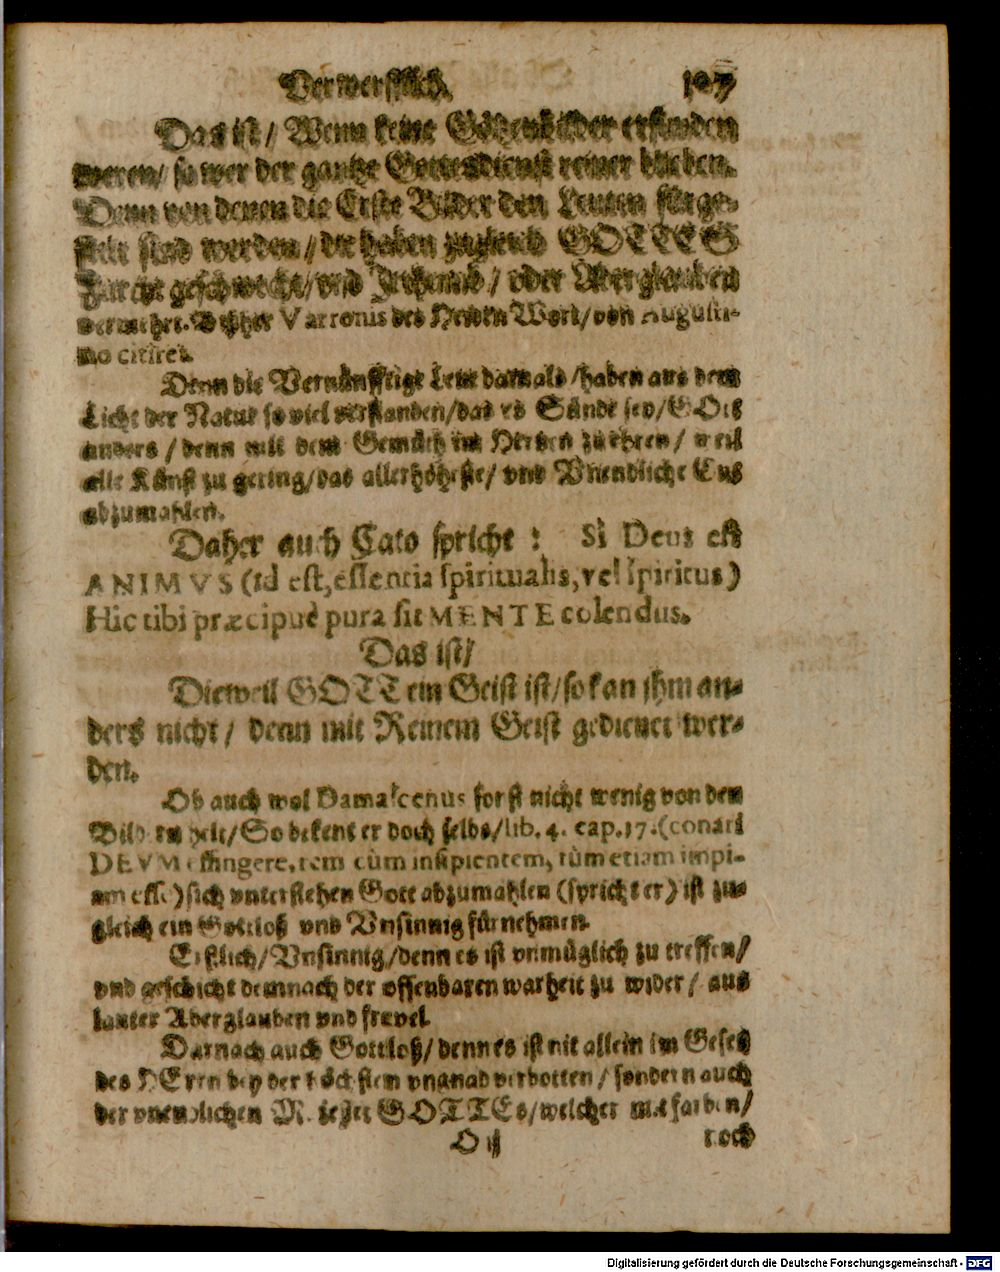 Verwerfflich. 107
Das ist/ Wenn keine Götzenbilder erfunden
weren/ so wer der gantze Gottesdienst reiner blieben.
Denn von denen die Erste Bilder den Leuten fürge-
stelt sind worden/ die haben zugleich GOTTES
Furcht geschwecht/ vnd Irthumb/ oder Aberglauben
vermehret. Bißher Varronis des Heiden Wort/ von Augusti-
no citiret.
Denn die Vernünfftige Leut damals/ haben aus dem
Licht der Natur so viel verstanden/ das es Sünde sey/ GOtt
anders/ denn mit dem Gemüth im Hertzen zu ehren/ weil
alle Künst zu gering/ das allerhöheste/ vnd Vnendliche Ens
abzumahlen.
Daher auch Cato spricht: Si Deus est
ANIMVS (id est, essentia spiritualis, vel spiritus)
Hic tibi præcipuè pura sit MENTE colendus.
Das ist/
Dieweil GOTT ein Geist ist/ so kan ihm an-
ders nicht/ denn mit Reinem Geist gedienet wer-
den.
Ob auch wol Damascenus sonst nicht wenig von den
Bildern helt/ So bekent er doch selbs/ lib. 4. cap. 17. (conari
DEVM effingere, rem cùm insipientem, tùm etiam impi-
am esse) sich vnterstehen Gott abzumahlen (spricht er) ist zu-
gleich ein Gottloß vnd Vnsinnig fürnehmen.
Erstlich/ Vnsinnig/ denn es ist vnmüglich zu treffen/
vnd geschicht demnach der offenbaren warheit zu wider/ aus
lauter Aberglauben vnd frevel.
Darnach auch Gottloß/ denn es ist nit allein im Gesetz
des HErrn bey der höchstem vngnad verbotten/ sondern auch
der vnendlichen GOTTEs/ welcher mit farben/
O ij noch
Digitalisierung gefördert durch die Deutsche Forschungsgemeinschaft - DFG